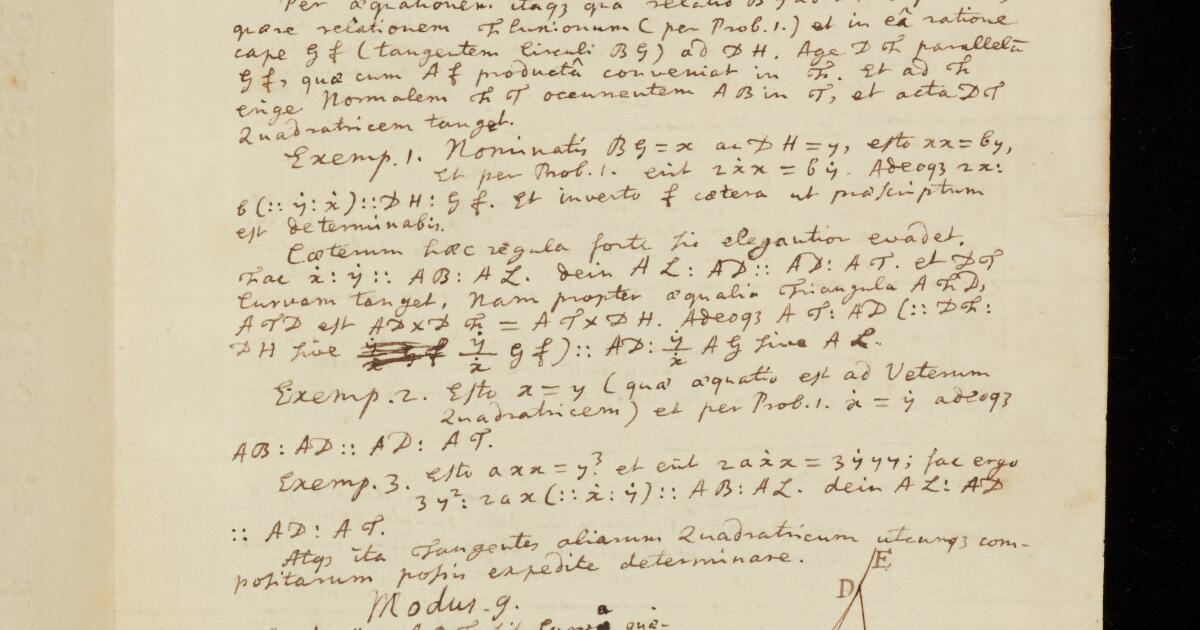 Per æquationem itaqȝ qua relatio BG ad
quære relationem Fluxionum (per Prob. 1.) et in eâ ratione
cape Gf (tangentem Circuli BG) ad DH. Age DF parallelã
Gf, quæ cum Af productâ conveniat in F. Et ad F
erige Normalem FT occurrentem AB in T, et acta DT
Quadratricem tanget.
Exemp. 1. Nominatis BG = x ac DH = y, esto xx = by,
Et per Prob. 1. erit 2ẋx = bẏ. Adeoqȝ 2x:
b (:: ẏ: ẋ) :: DH: Gf. Et invento f cætera ut præscriptum
est determinabis.
Cæterum hæc regula forte sic elegantior evadet.
Fac ẋ: ẏ :: AB: AL. dein AL: AD :: AD: AT. et DT
Curvam tanget, Nam propter æqualia Triangula AFD,
ATD est AD×DF = AT×DH. Adeoqȝ AT: AD (:: DF:
DH sive ẏ/ẋ Gf) :: AD: ẏ/ẋ AG sive AL.
Exemp. 2. Esto x = y (quæ æquatio est ad Veterum
Quadratricem) et per Prob. 1. ẋ = ẏ adeoqȝ
AB: AD :: AD: AT.
Exemp. 3. Esto axx = y³ et erit 2aẋx = 3ẏyy; fac ergo
3y²: 2ax (:: ẋ: ẏ) :: AB: AL. dein AL: AD
:: AD: AT.
Atqȝ ita Tangentes aliarum Quadratricum utcunqȝ com-
positarum possis expedite determinare.
E
D
Modus. 9.
quæ-